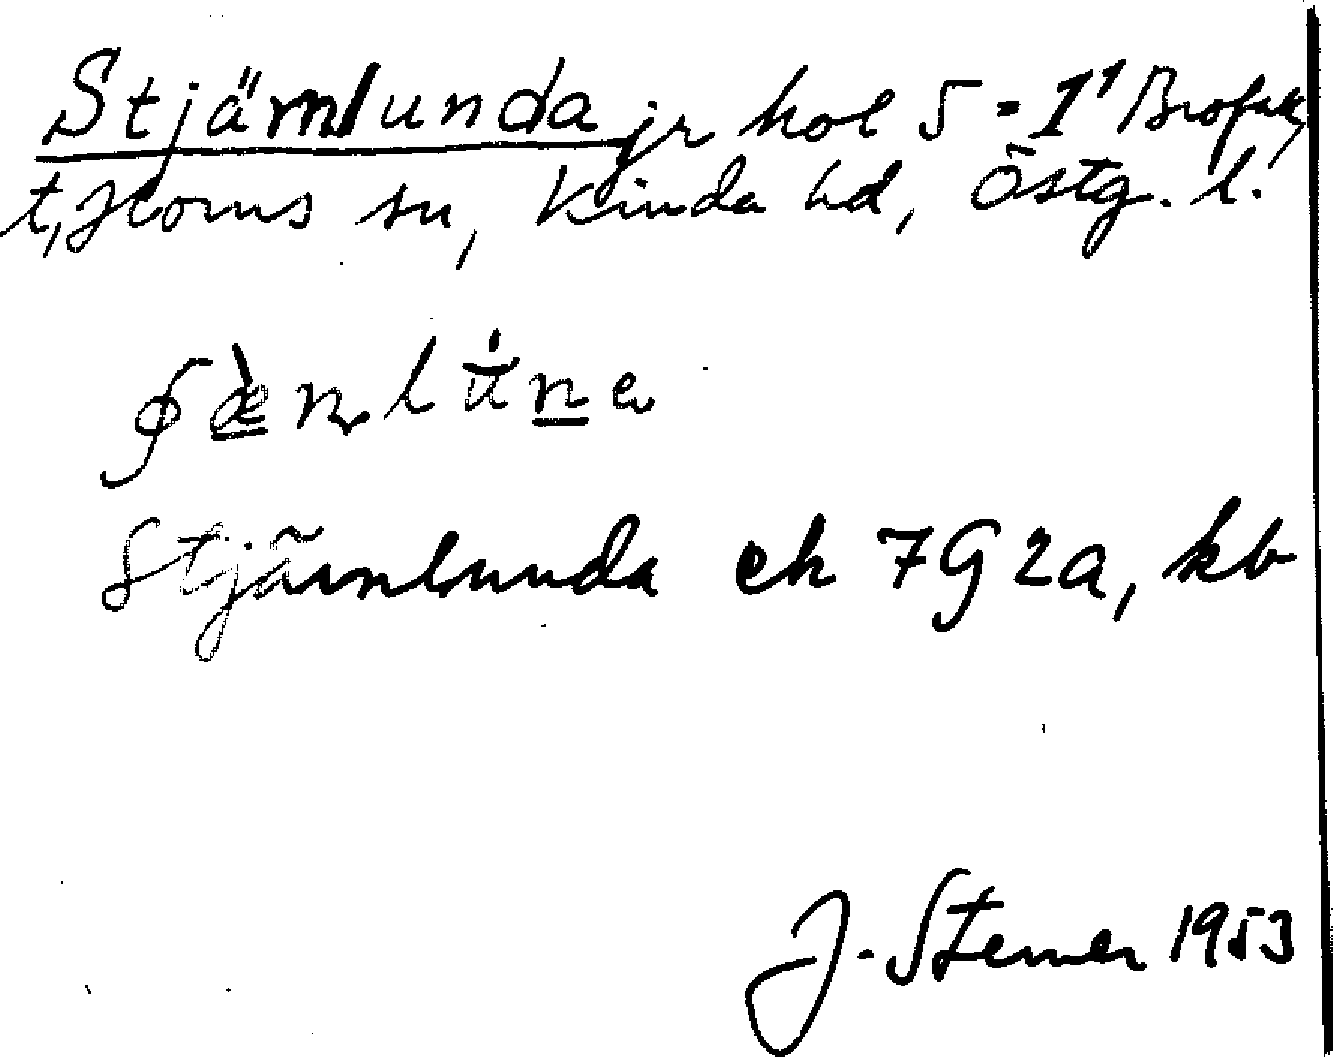 Stjärnlunda jr kol 5 - 1' Brofall,
t, Horns sn, Kinda hd, Östg. l.
Stjärnlunda ek 7G2a, kb
J. Sterner 1953